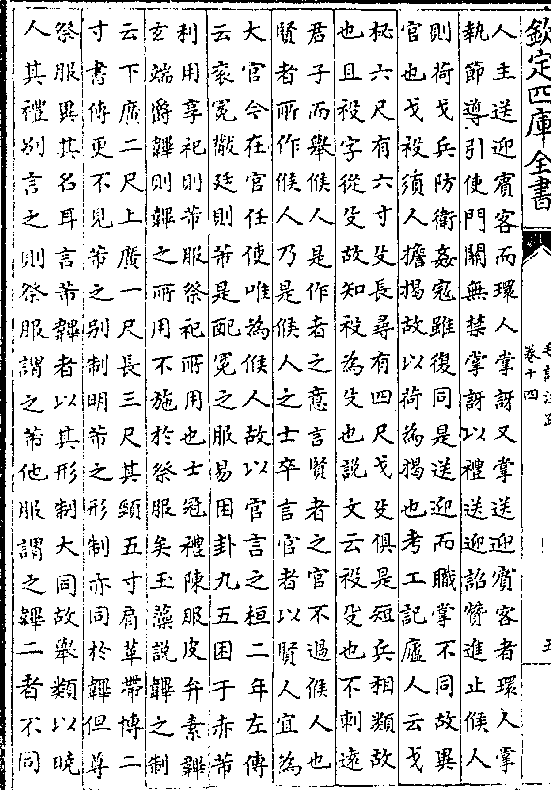 欽定四庫全書
卷十四
人主送迎賓客而環人掌訝又掌送迎賓客者環人掌
執節導引使門關無禁掌訝以禮送迎詔贊進止候人
則荷戈兵防衛姦寇雖復同是送迎而職掌不同故異
官也戈祋須人擔揭故以荷為揭也考工記廬人云戈
柲六尺有六寸殳長尋有四尺戈殳俱是短兵相類故
也且祋字從殳故知祋為殳也說文云祋殳也不刺遠
君子而舉候人是作者之意言賢者之官不過候人也
賢者所作候人乃是候人之士卒言官者以賢人宜為
大官今在官任使唯為候人故以官言之桓二年左傳
云衮冕黻珽則芾是配冕之服易困卦九五困于赤芾
利用享祀則芾服祭祀所用也士冠禮陳服皮弁素韠
玄端爵韠則韠之所用不施於祭服矣玉藻說韠之制
云下廣二尺上廣一尺長三尺其頸五寸肩革帶博二
寸書傳更不見芾之别制明芾之形制亦同於韠但尊
祭服異其名耳言芾韠者以其形制大同故舉類以曉
人其禮别言之則祭服謂之芾他服謂之韠二者不同